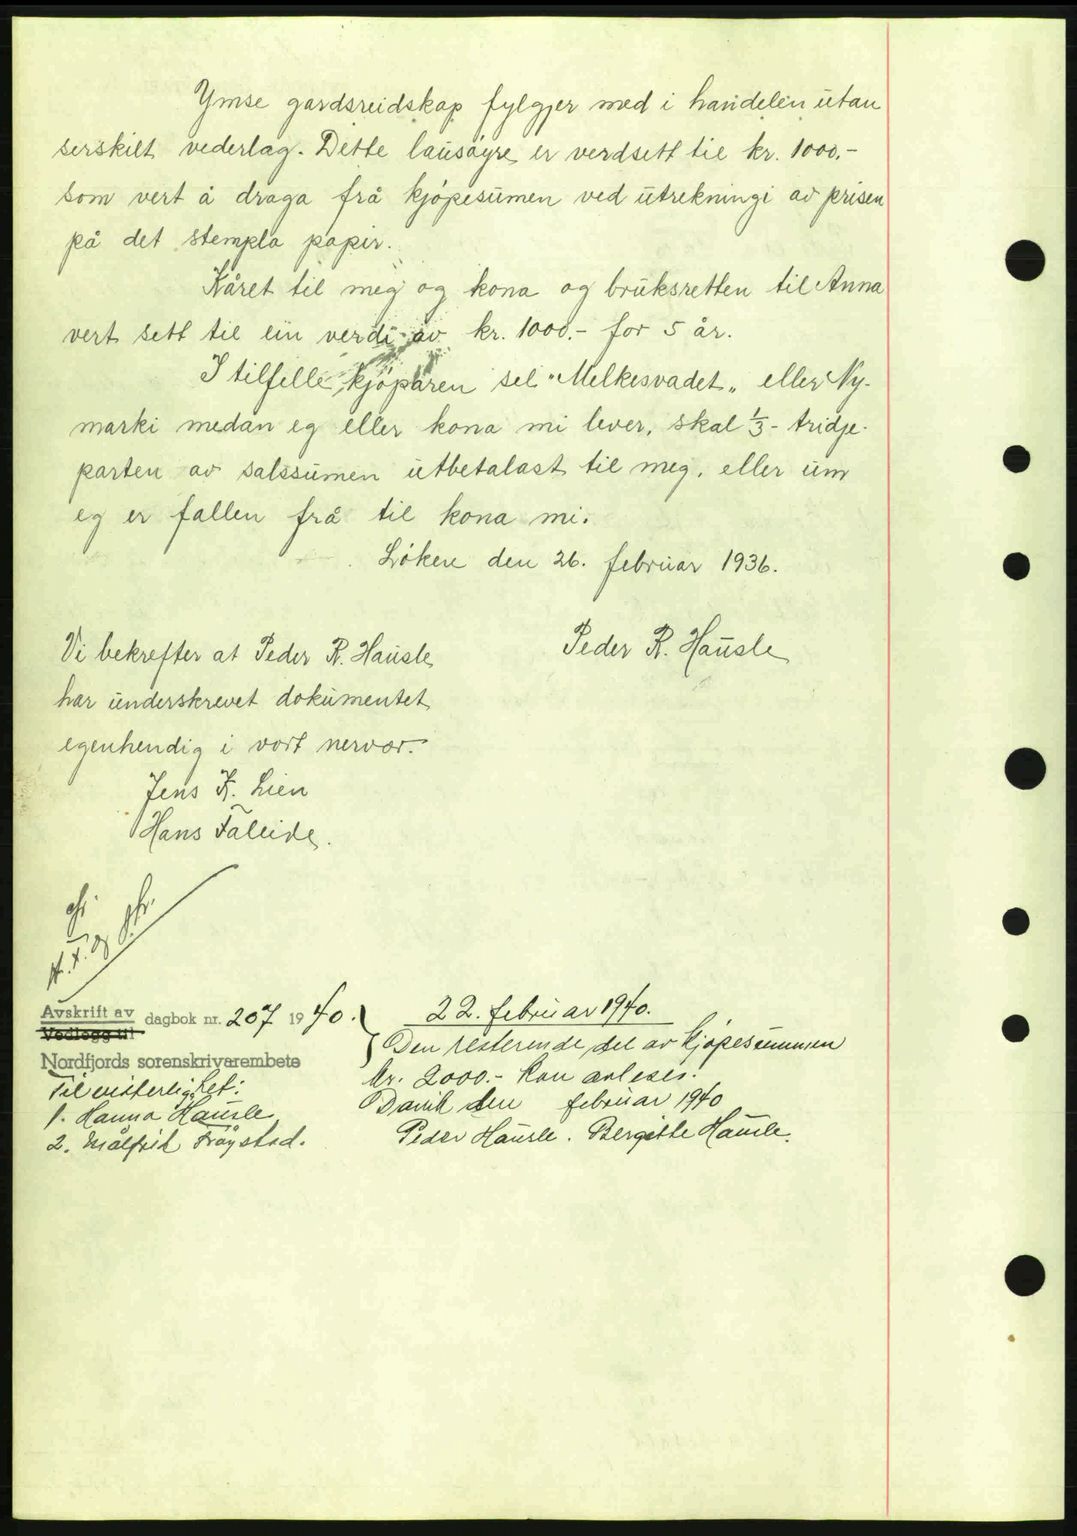 Ymse gardsreidskap fylgjer med i handelen utan
serskilt vederlag. Dette lausøyre er verdsett til kr. 1000.-
som vert å draga frå kjøpesumen ved utrekningi av prisen
på det stempla papir.
Kåret til meg og kona og bruksretten til Anna
vert sett til ein verdi av kr. 1000.- for 5 år.
I tilfelle kjøparen sel "Melkesvadet" eller Ny-
marki medan eg eller kona mi lever, skal 1/3- tridje-
parten av salssumen utbetalast til meg, eller um
eg er fallen frå til kona mi.
Løken den 26. februar 1936.
Peder R. Hausle
Vi bekrefter at Peder R. Hausle
har underskrevet dokumentet
egenhendig i vort nervær.
Jens K. Lien
Hans Faleide.
Avskrift av
Vedlegg til
dagbok nr. 207 1940.
Nordfjords sorenskrivarembete
22. februar 1940.
Den resterende del av kjøpesummen
kr. 2000.- kan avleses.
Davik den februar 1940
Peder Hausle. Bergitte Hausle.
Til vitterlighet:
1. Hanna Hausle
2. Målfrid Frøystad.